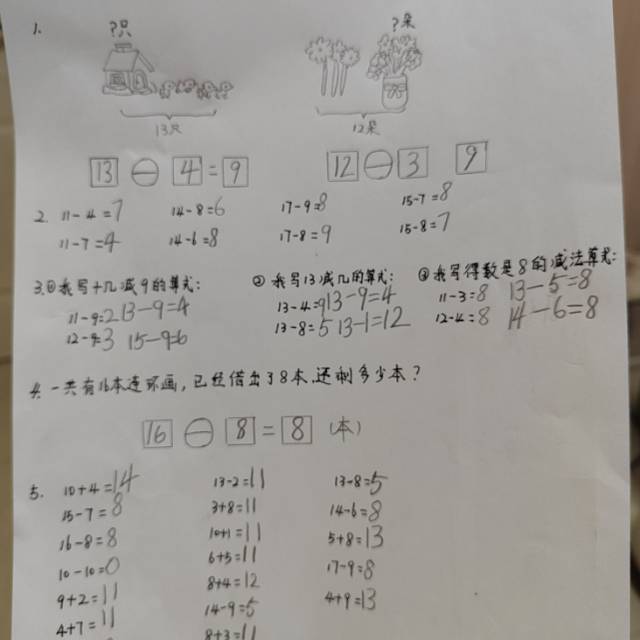 1. ?只 ?朵
13只 12朵
13 - 4 = 9 12 - 3 9
2. 11-4=7 14-8=6 17-9=8 15-7=8
11-7=4 14-6=8 17-8=9 15-8=7
3.① 我写十几减9的算式: ② 我写13减几的算式: ③ 我写得数是8的减法算式:
11-9=2 13-9=4 13-4=9 13-9=4 11-3=8 13-5=8
12-9=3 15-9=6 13-8=5 13-1=12 12-4=8 14-6=8
4. 一共有16本连环画,已经借出了8本,还剩多少本?
16 - 8 = 8 (本)
5. 10+4=14 13-2=11 13-8=5
15-7=8 3+8=11 14-6=8
16-8=8 10+1=11 5+8=13
10-10=0 6+5=11 17-9=8
9+2=11 8+4=12 4+9=13
4+7=11 14-9=5
8+3=11